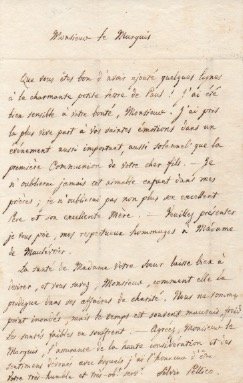 Monsieur le Marquis
Que vous êtes bon d'avoir ajouté quelques lignes
à la charmante petite lettre de Paul ! J'ai été
bien sensible à votre bonté, Monsieur. J'ai pris
la plus vive part à vos saintes émotions dans un
événement aussi important, aussi solennel que la
première Communion de votre cher fils. Je
n'oublierai jamais cet aimable enfant dans mes
prières ; je n'oublierai pas non plus son excellent
Père et son excellente Mère. — Veuillez présenter
je vous prie, mes respectueux hommages à Madame
de
La santé de Madame votre Sœur laisse bien à
désirer, et vous savez, Monsieur, comment elle la
prodigue dans ses affaires de charité. Nous ne sommes
point inondés mais le temps est souvent mauvais,
les santés faibles en souffrent. — Agréez, Monsieur le
Marquis, l'assurance de la haute considération et des
sentiments dévoués avec lesquels j'ai l'honneur d'être
votre très humble et très ob. serv. Silvio Pellico.